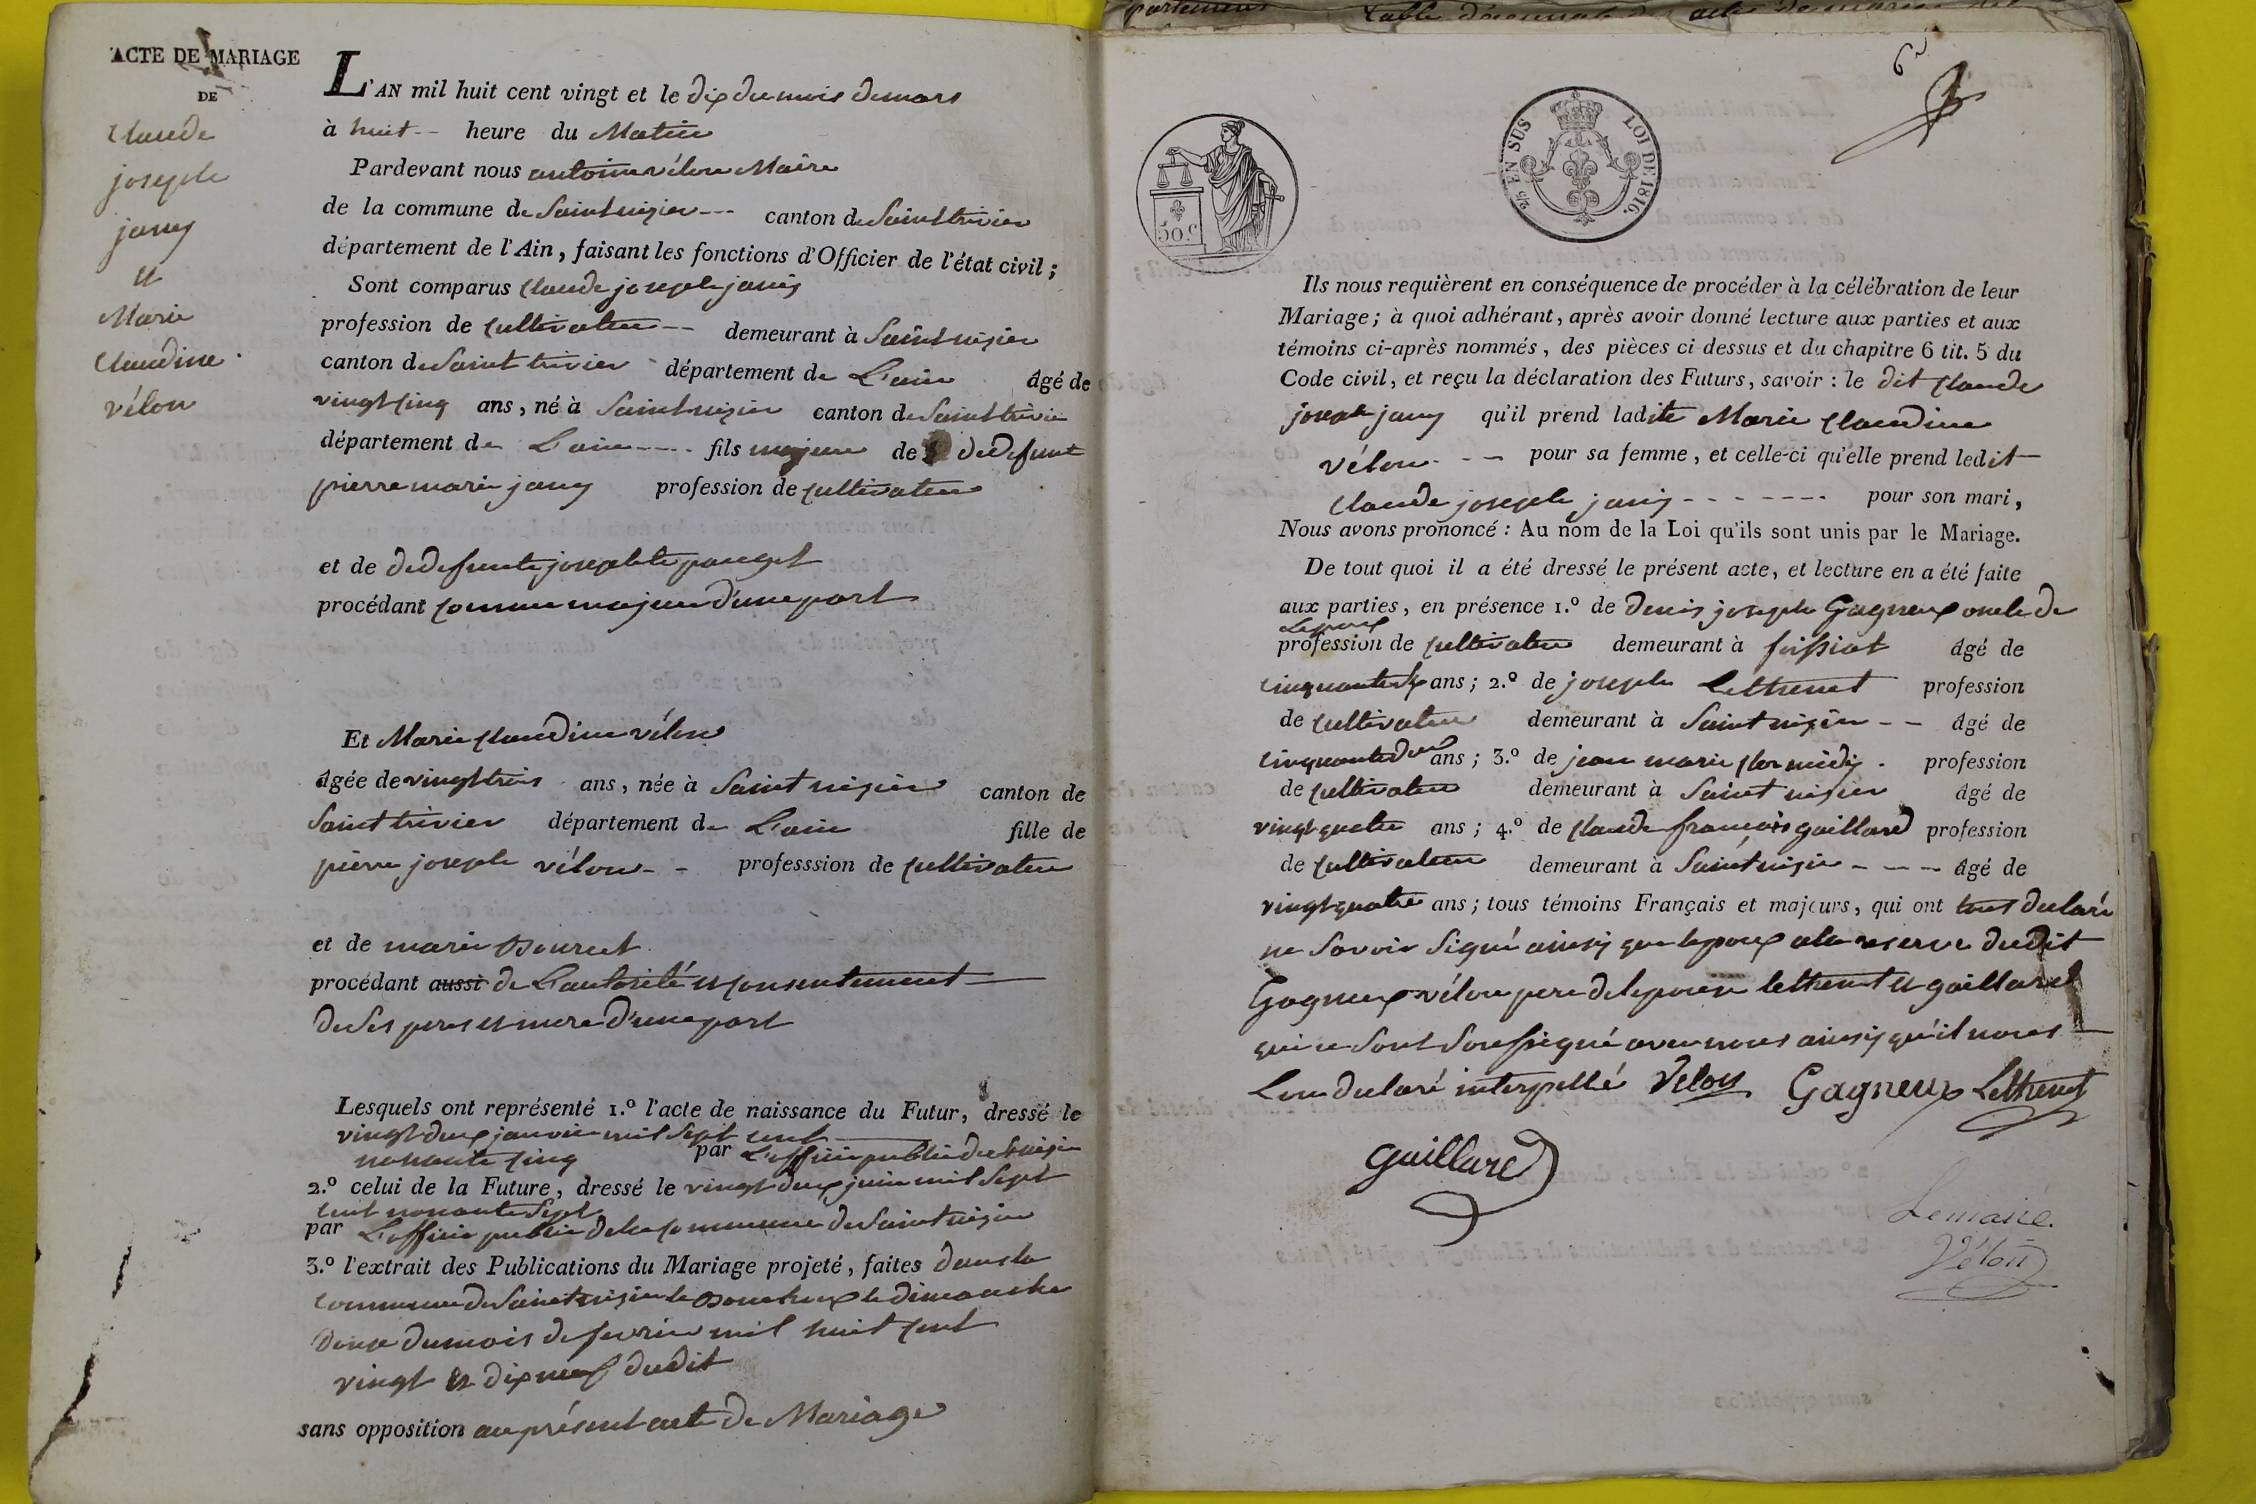 ACTE DE MARIAGE
DE
Claude
joseph
jany
et
Marie
Claudine
vélon
L'AN mil huit cent vingt et le dix du mois de mars
à huit -- heure du Matin
Pardevant nous antoine vélon Maire
de la commune de Saint nizier --- canton de Saint trivier
département de l'Ain, faisant les fonctions d'Officier de l'état civil;
Sont comparus Claude joseph jany
profession de Cultivateur -- demeurant à Saint nizier
canton de Saint trivier département de L'ain âgé de
vingt cinq ans, né à Saint nizier canton de Saint trivier
département de L'ain ---- fils majeur de dedefunt
pierre marie jany profession de Cultivateur
et de dedefunte josephte pauget
procédant comme majeur d'une part
Et Marie Claudine vélon
âgée de vingt trois ans, née à Saint nizier canton de
Saint trivier département de L'ain fille de
pierre joseph vélon -- professsion de Cultivateur
et de marie
procédant aussi de L'autorité et consentement
de Ses peres et mere d'une part
Lesquels ont représenté 1.º l'acte de naissance du Futur, dressé le
vingt deux janvier mil Sept cent
nonante cinq par L'officier public de St nizier
2.º celui de la Future, dressé le vingt deux juin mil Sept
cent nonante Sept
par L'officier public de la Commune de Saint nizier
3.º l'extrait des Publications du Mariage projeté, faites dans la
Commune de Saint nizier le Boucheux le dimanche
du mois de fevrier mil huit cent
vingt et dix neuf dudit
sans opposition au présent acte de Mariage
6
50.c
2/5 EN SUS LOI DE 1816.
Ils nous requièrent en conséquence de procéder à la célébration de leur
Mariage; à quoi adhérant, après avoir donné lecture aux parties et aux
témoins ci-après nommés, des pièces ci dessus et du chapitre 6 tit. 5 du
Code civil, et reçu la déclaration des Futurs, savoir: le dit Claude
joseph jany qu'il prend ladite Marie Claudine
vélon -- pour sa femme, et celle-ci qu'elle prend ledit
Claude joseph jany ------- pour son mari,
Nous avons prononcé: Au nom de la Loi qu'ils sont unis par le Mariage.
De tout quoi il a été dressé le présent acte, et lecture en a été faite
aux parties, en présence 1.º de denis joseph Gagneux oncle de
L'epoux
profession de Cultivateur demeurant à foissiat âgé de
ans; 2.º de joseph Lethenet profession
de Cultivateur demeurant à Saint nizier -- âgé de
cinquante deux ans; 3.º de jean marie profession
de Cultivateur demeurant à Saint nizier âgé de
vingt quatre ans; 4.º de Claude françois gaillard profession
de Cultivateur demeurant à Saint nizier ---- âgé de
vingt quatre ans; tous témoins Français et majeurs, qui ont tous declaré
ne Savoir Signé ainsy que lepoux a la reserve dudit
Gagneux vélon pere de lepouse lethenet et gaillard
qui se Sont Soussigné avec nous ainsy qu'il nous
L'on declaré interpellé Velon Gagneux Lethenet
gaillard
Lemaire.
Vélon